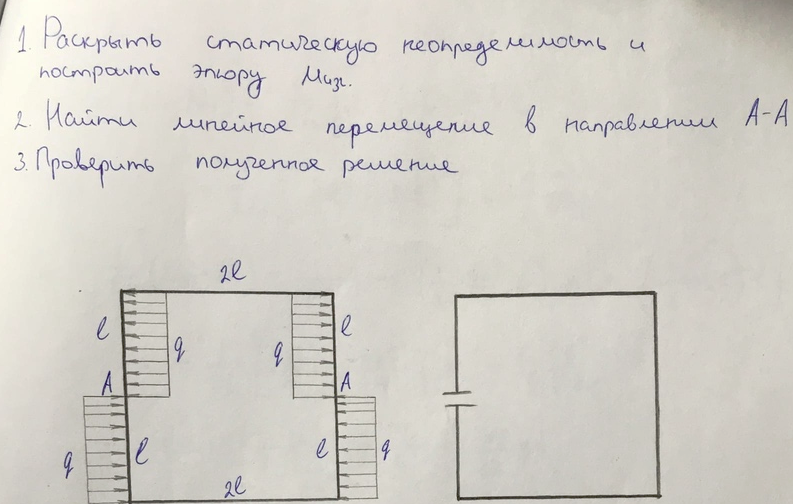 1. Раскрыть статическую неопределимость и
построить эпюру Mизг.
2. Найти линейное перемещение в направлении A-A
3. Проверить полученное решение
2l
l
q
q
l
A
A
q
l
l
q
2l